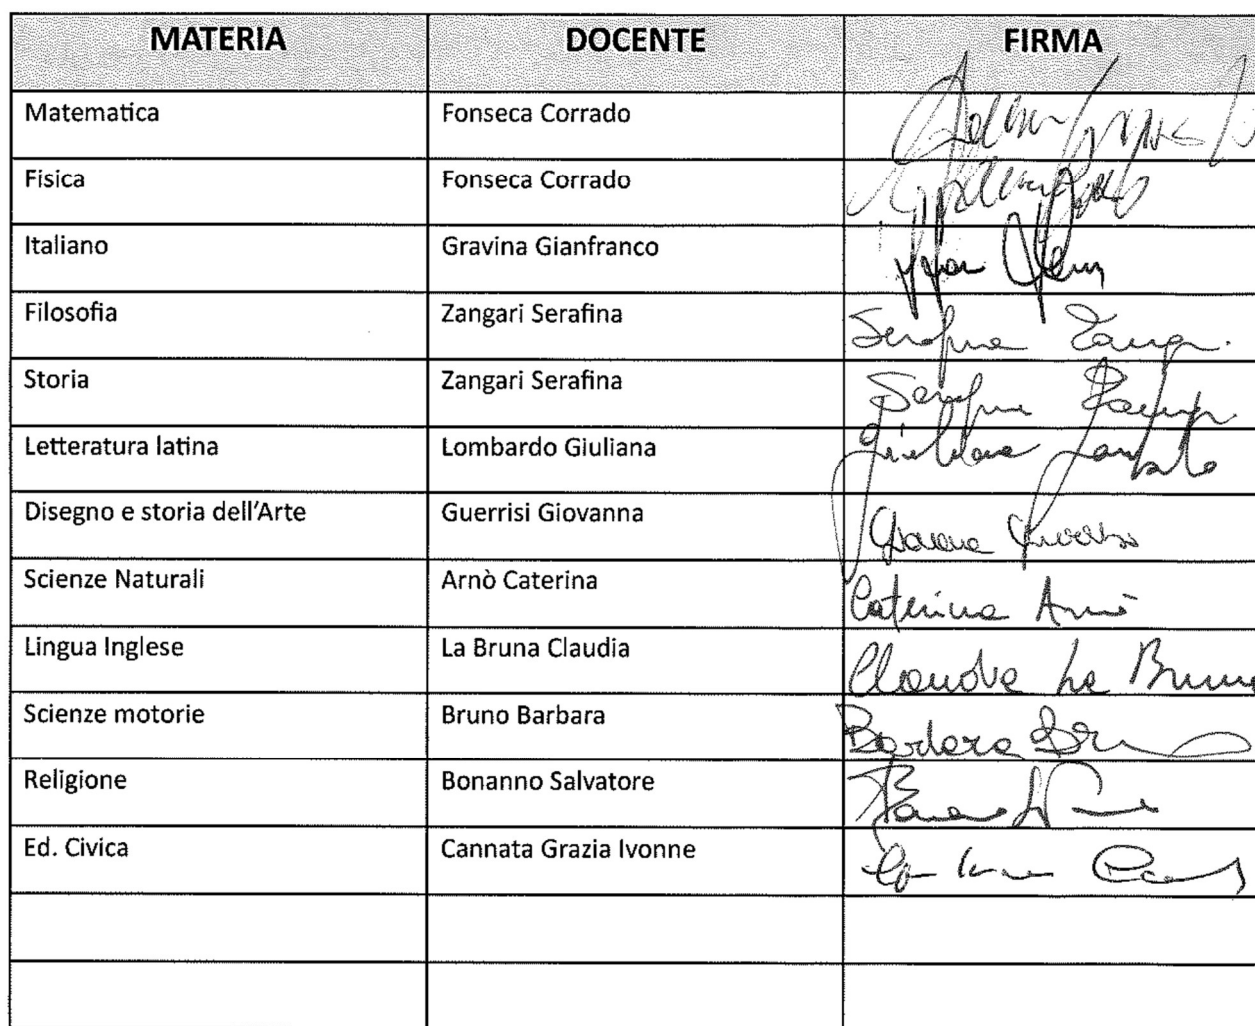 MATERIA DOCENTE FIRMA
Matematica Fonseca Corrado
Fisica Fonseca Corrado
Italiano Gravina Gianfranco
Filosofia Zangari Serafina Serafina
Storia Zangari Serafina Serafina
Letteratura latina Lombardo Giuliana Giuliana Lombardo
Disegno e storia dell'Arte Guerrisi Giovanna
Scienze Naturali Arnò Caterina Caterina Arnò
Lingua Inglese La Bruna Claudia Claudia La Bruna
Scienze motorie Bruno Barbara Barbara
Religione Bonanno Salvatore
Ed. Civica Cannata Grazia Ivonne